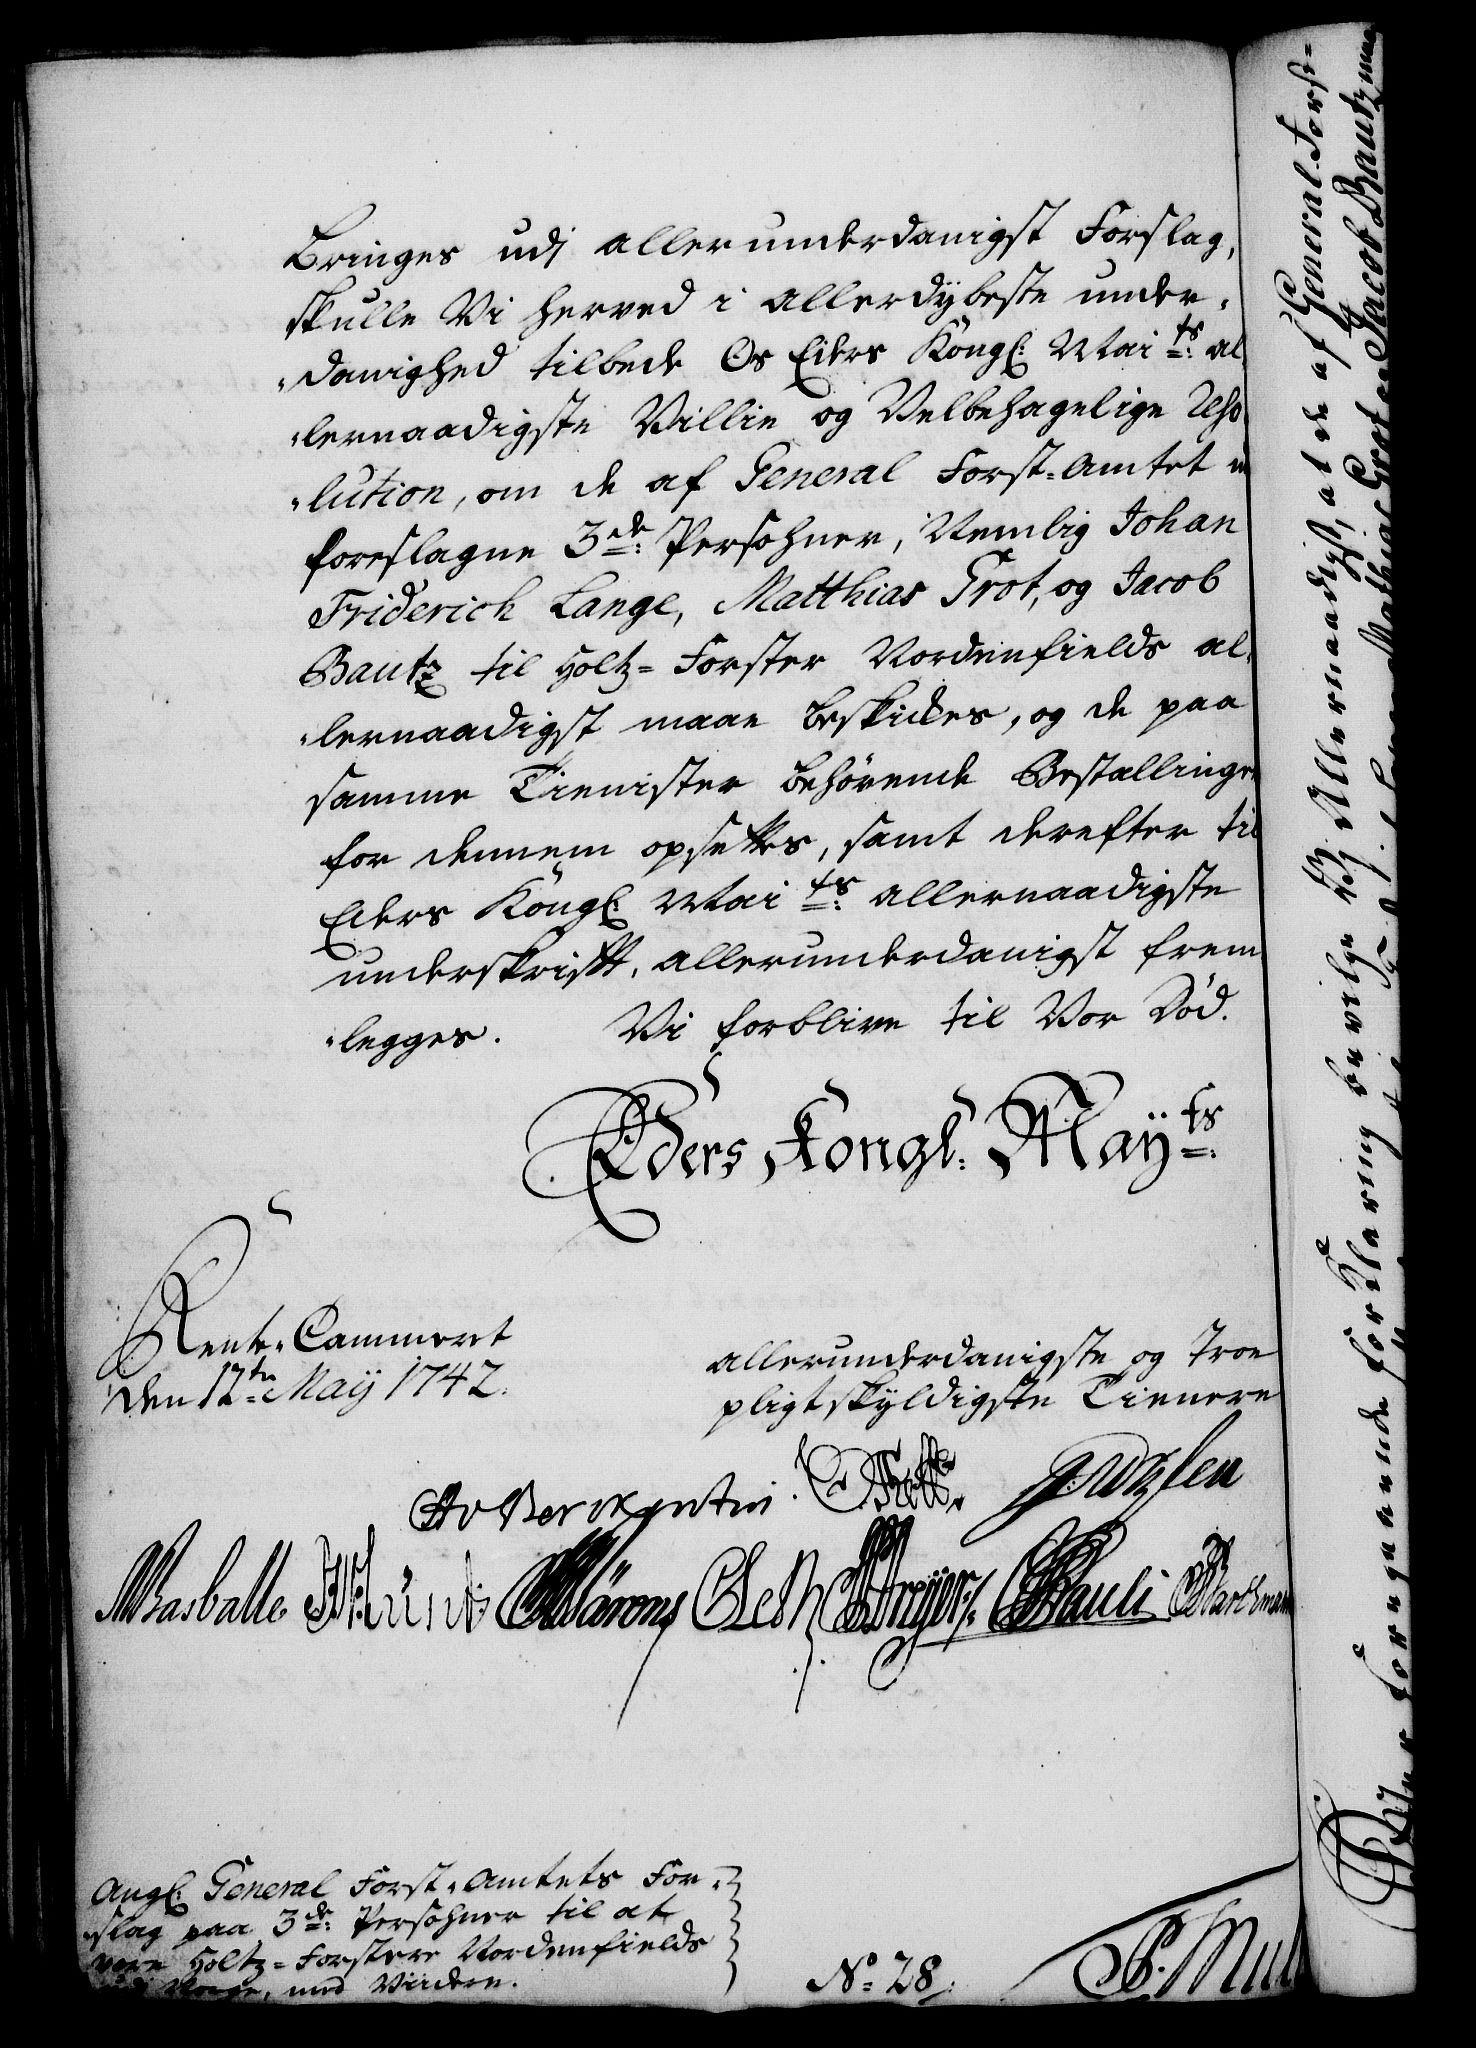 bringes udj allerunderdanigst Forslag,
skulle Vi herved i allerdybeste under„
„danighed tilbede Os Eders Köngl: Mai ts: al
„lernaadigste Villie og Velbehagelige Reso
„lution, om de af General Forst-Amtet
foreslagne 3de: Persohner, Nemlig Johan
Friderich Lange, Matthias Grot, og Jacob
Bautz til Holtz-Forster Nordenfields al„
„lernaadigst maae beskickes, og de paa
samme Tienister behörende Bestallinger
for dennem opsettes, samt derefter til
Eders Köngl: Mai ts: allernaadigste
underskrifft, allerunderdanigst frem
„legges. Vi forblive til Vor Död.
Eders Kongl: Mayts:
Rente-Cammeret
den 12te May 1742.
allerunderdanigste og Troe
pligtskyldigste Tienere
Berckentin
Basballe
Pauli
Angl: General Forst-Amtets For„
„slag paa 3de: Persohner til at
være Holtz-Forstere Nordenfields
Norge, med Viidere.
No: 28.
Over foregaaende forklaring bevilge Vj Allernaadigst, at de af General-Forst-
Mathias Grot og Jacob Bautz maae